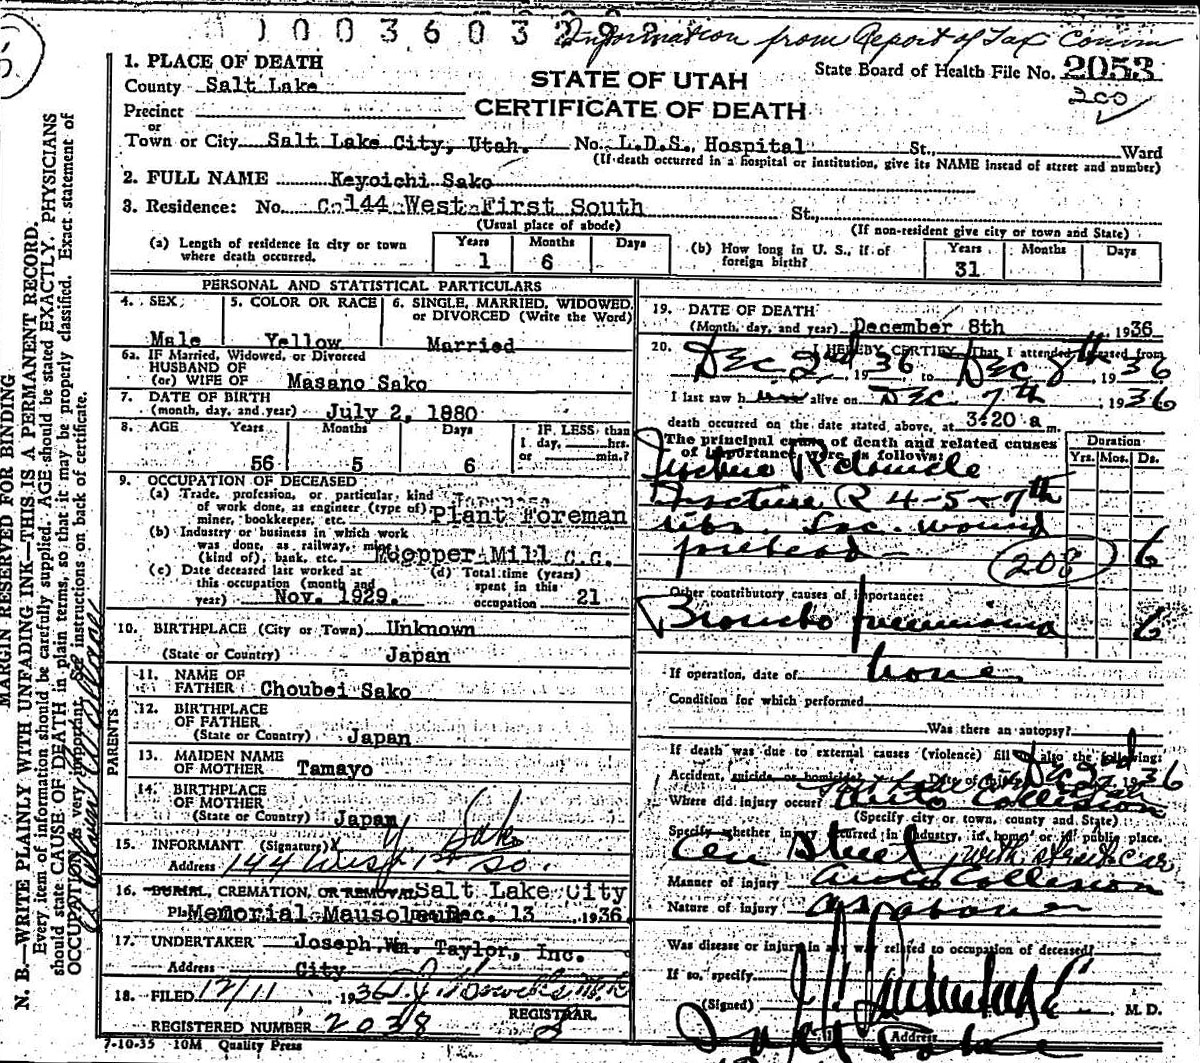 1003603298
Information from Report of Tax Comm
State Board of Health File No. 2053
200
STATE OF UTAH
CERTIFICATE OF DEATH
1. PLACE OF DEATH
County Salt Lake
Precinct
or
Town or City Salt Lake City, Utah. No. L.D.S. Hospital St., Ward
(If death occurred in a hospital or institution, give its NAME insead of street and number)
2. FULL NAME Keyoichi Sako
3. Residence: No. C-144 West First South St.,
(Usual place of abode) (If non-resident give city or town and State)
(a) Length of residence in city or town where death occurred. Years 1 Months 6 Days
(b) How long in U. S., if of foreign birth? Years 31 Months Days
PERSONAL AND STATISTICAL PARTICULARS
4. SEX Male
5. COLOR OR RACE Yellow
6. SINGLE, MARRIED, WIDOWED, or DIVORCED (Write the Word) Married
6a. IF Married, Widowed, or Divorced
HUSBAND OF
(or) WIFE OF Masano Sako
7. DATE OF BIRTH
(month, day, and year) July 2, 1880
8. AGE Years 56 Months 5 Days 6 IF LESS than 1 day, hrs. or min.?
9. OCCUPATION OF DECEASED
(a) Trade, profession, or particular, kind
of work done, as engineer (type of)
miner, bookkeeper, etc. Plant Foreman
(b) Industry or business in which work
was done, as railway, mine
(kind of), bank, etc. Copper Mill C.C.
(c) Date deceased last worked at
this occupation (month and
year) Nov. 1929.
(d) Total time (years)
spent in this
occupation 21
10. BIRTHPLACE (City or Town) Unknown
(State or Country) Japan
PARENTS
11. NAME OF
FATHER Choubei Sako
12. BIRTHPLACE
OF FATHER
(State or Country) Japan
13. MAIDEN NAME
OF MOTHER Tamayo
14. BIRTHPLACE
OF MOTHER
(State or Country) Japan
15. INFORMANT (Signature) Y Sako
Address 144 West 1st So.
16. BURIAL, CREMATION, OR REMOVAL Salt Lake City
Memorial Mausoleum Dec. 13, 1936
17. UNDERTAKER Joseph Wm. Taylor, Inc.
Address City
18. FILED 12/11, 1936
REGISTRAR.
REGISTERED NUMBER 2038
7-10-35 10M Quality Press
19. DATE OF DEATH
(Month, day, and year) December 8th 1936
20. I HEREBY CERTIFY, That I attended deceased from
Dec 2nd, 1936, to Dec 8th, 1936
I last saw him alive on Dec 7th, 1936
death occurred on the date stated above, at 3:20 a m.
The principal cause of death and related causes
of importance were as follows:
Duration
Yrs. Mos. Ds.
Fracture R clavicle
Fracture R 4-5-7th
ribs. Lac. wound
forehead 208 6
Other contributory causes of importance:
Broncho pneumonia 6
If operation, date of none
Condition for which performed
Was there an autopsy?
If death was due to external causes (violence) fill in also the following:
Accident, suicide or homicide? Date of injury Dec 2nd 1936
Where did injury occur? Auto Collision
(Specify city or town, county and State)
Specify whether injury occurred in industry, in home or in public place.
On Street, with street car
Manner of injury Auto Collision
Nature of injury as above
Was disease or injury in any way related to occupation of deceased?
If so, specify
(Signed) M. D.
Address Salt Lake
MARGIN RESERVED FOR BINDING
N. B.—WRITE PLAINLY WITH UNFADING INK—THIS IS A PERMANENT RECORD.
Every item of information should be carefully supplied. AGE should be stated EXACTLY. PHYSICIANS
should state CAUSE OF DEATH in plain terms, so that it may be properly classified. Exact statement of
OCCUPATION is very important. See instructions on back of certificate.